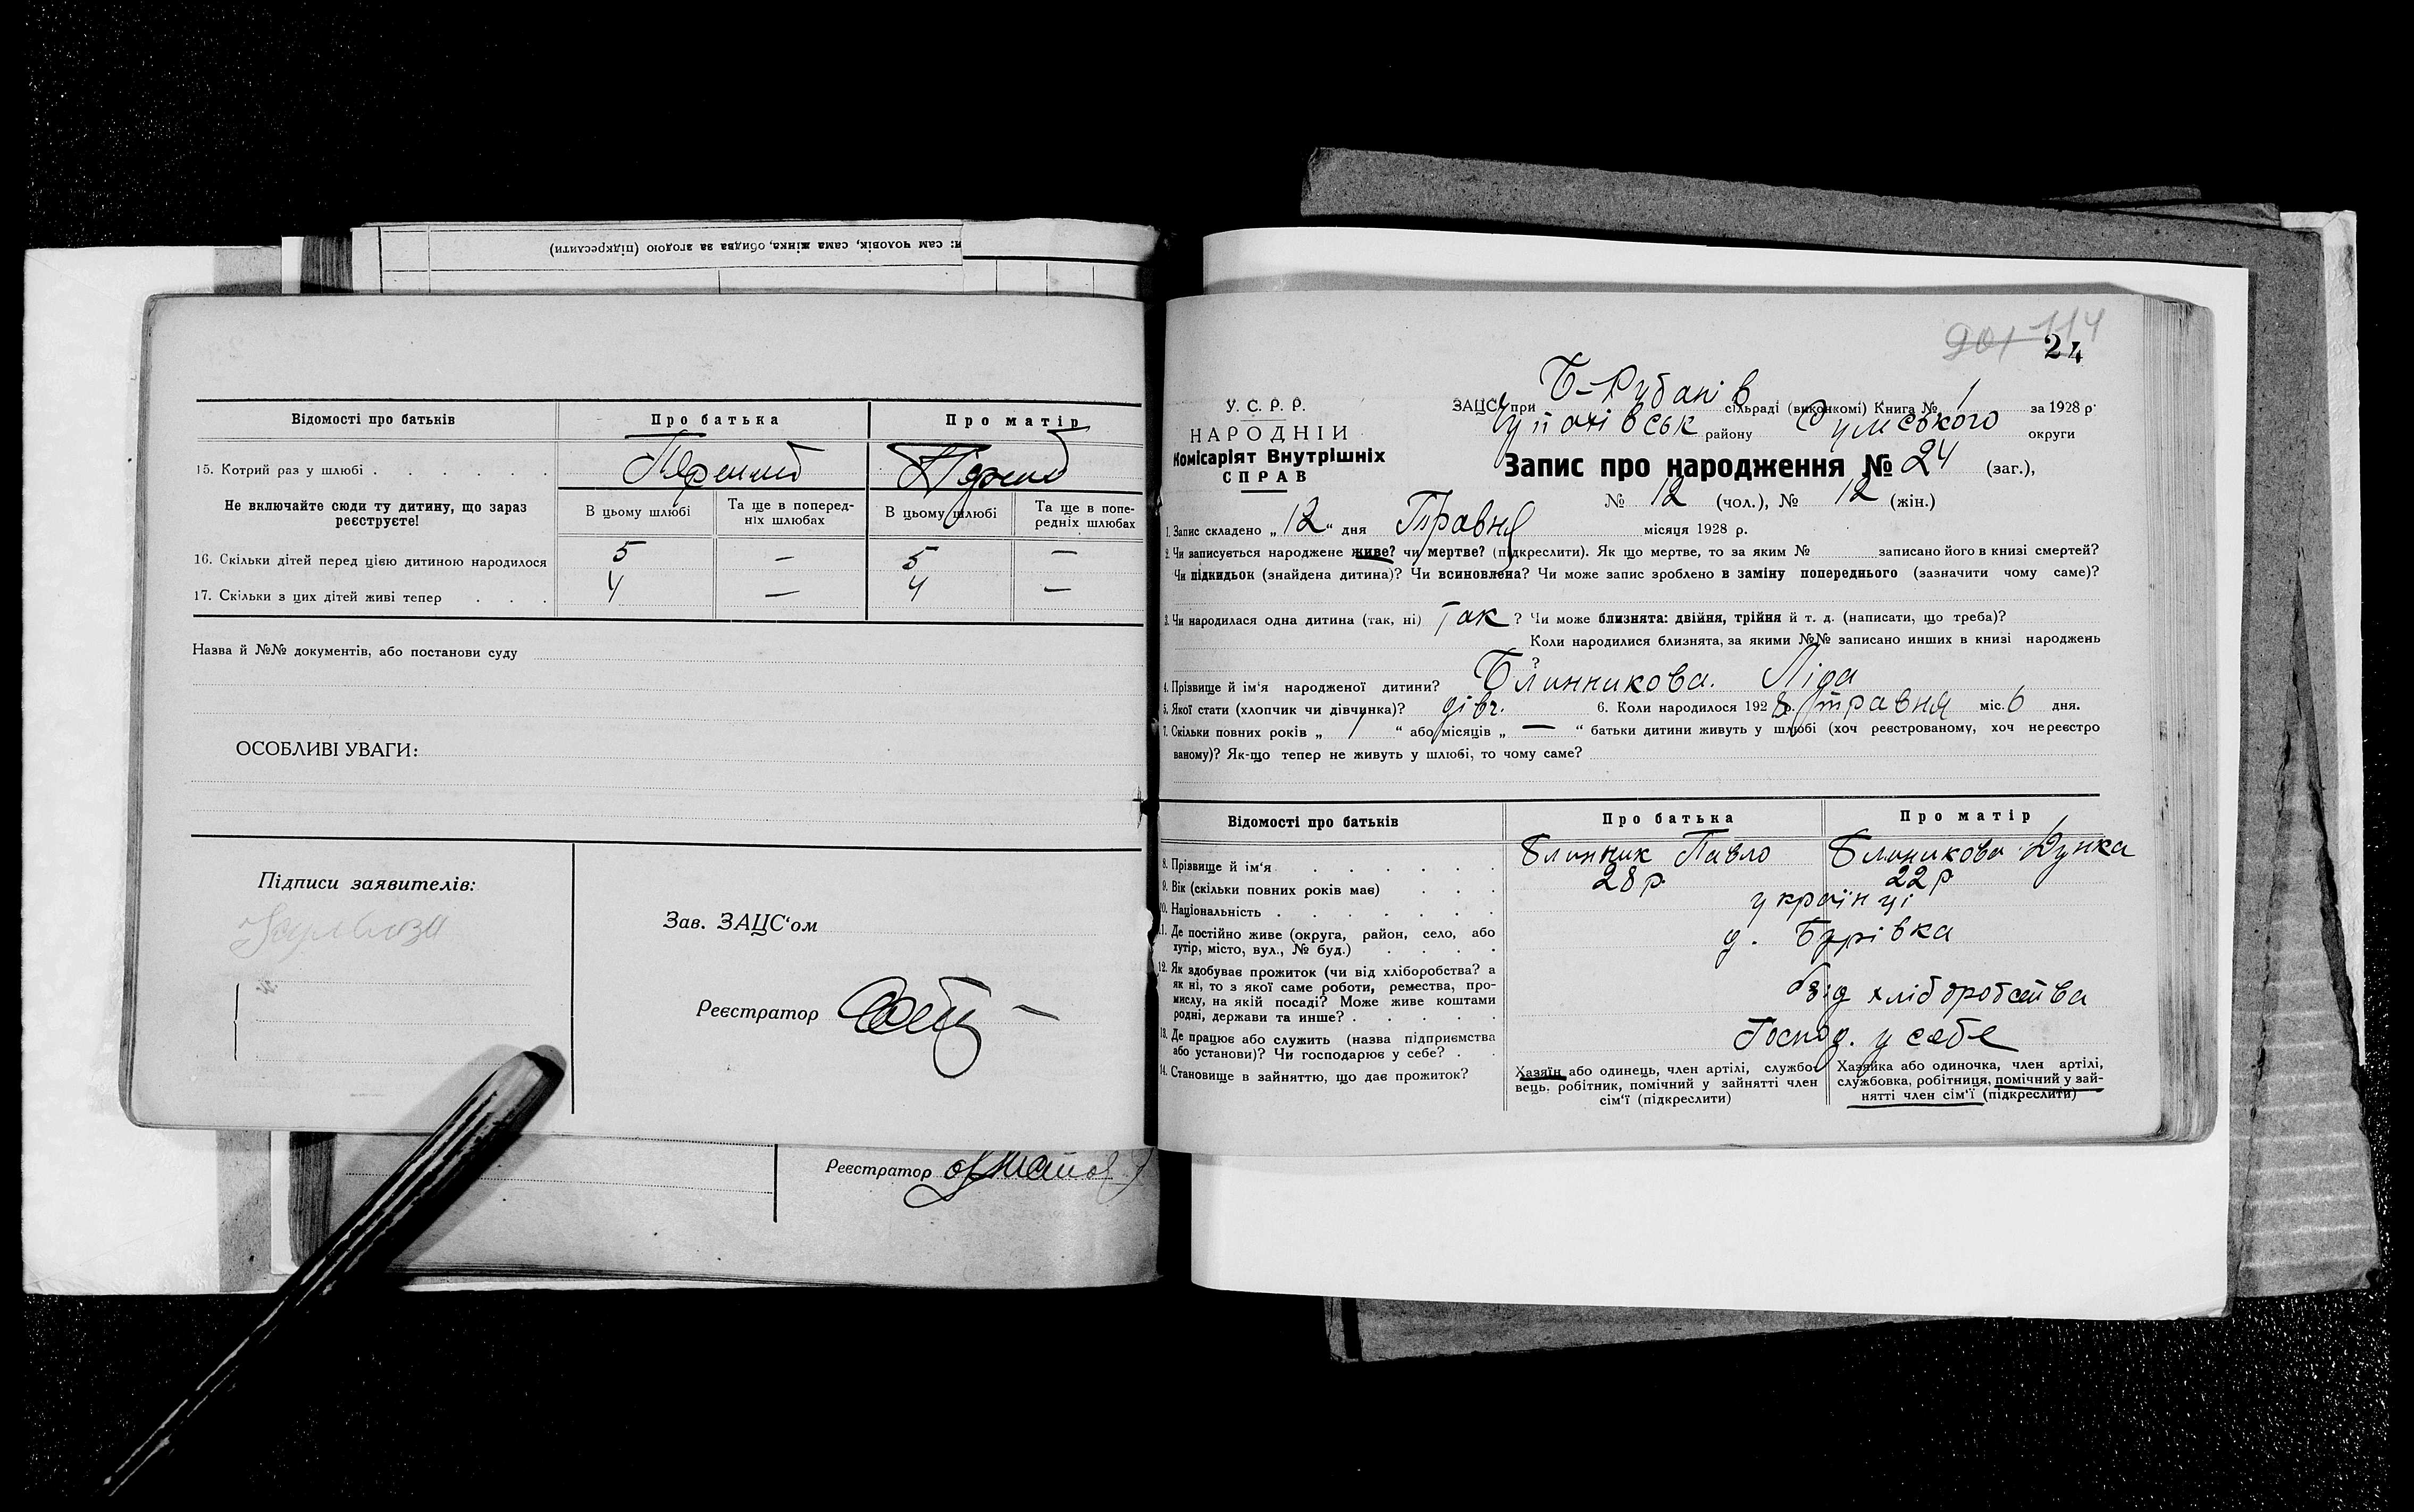 и: сам чоловік, сама жінка, обидва за згодою (підкреслити)
Відомості про батьків
Про батька
Про матір
15. Котрий раз у шлюбі . . . . . .
Не включайте сюди ту дитину, що зараз
реєструєте!
В цьому шлюбі
Та ще в поперед-
ніх шлюбах
В цьому шлюбі
Та ще в попе-
редніх шлюбах
16. Скільки дітей перед цією дитиною народилося 5 — 5 —
17. Скільки з цих дітей живі тепер . . . 4 — 4 —
Назва й №№ документів, або постанови суду
ОСОБЛИВІ УВАГИ:
Підписи заявителів:
Зав. ЗАЦС‘ом
Реєстратор
Реєстратор
114
24
У. С. Р. Р.
НАРОДНІЙ
Комісаріят Внутрішніх
СПРАВ
ЗАЦС при Б-Рубанів сільраді (виконкомі) Книга № 1 за 1928 р.
району Сумського округи
Запис про народження № 24 (заг.),
№ 12 (чол.), № 12 (жін.)
1. Запис складено „ 12 “ дня Травня місяця 1928 р.
2. Чи записується народжене живе? чи мертве? (підкреслити). Як що мертве, то за яким № записано його в книзі смертей?
Чи підкидьок (знайдена дитина)? Чи всиновлена? Чи може запис зроблено в заміну попереднього (зазначити чому саме)?
3. Чи народилася одна дитина (так, ні) Так ? Чи може близнята: двійня, трійня й т. д. (написати, що треба)?
Коли народилися близнята, за якими №№ записано инших в книзі народжень
?
4. Прізвище й ім‘я народженої дитини? Блинникова. Ліда
5. Якої стати (хлопчик чи дівчинка)? дівч. 6. Коли народилося 1928 р. травня міс. 6 дня.
7. Скільки повних років „ 7 “ або місяців „ — “ батьки дитини живуть у шлюбі (хоч реєстрованому, хоч нереєстро
ваному)? Як-що тепер не живуть у шлюбі, то чому саме?
Відомості про батьків
Про батька
Про матір
8. Прізвище й ім‘я . . . . . . Блинник Павло Блиникова Дунка
9. Вік (скільки повних років має) . . . 28 р. 22 р
10. Національність . . . . . . . українці
11. Де постійно живе (округа, район, село, або
хутір, місто, вул., № буд.) . . . . д. Бурівка
12. Як здобуває прожиток (чи від хліборобства? а
як ні, то з якої саме роботи, ремества, про-
мислу, на якій посаді? Може живе коштами
родні, держави та инше? . . . . . Від хліборобства
13. Де працює або служить (назва підприємства
або установи)? Чи господарює у себе? . . Господ. у себе
14. Становище в зайняттю, що дає прожиток?
Хазяїн або одинець, член артілі, службо-
вець, робітник, помічний у зайнятті член
сім‘ї (підкреслити)
Хазяйка або одиночка, член артілі,
службовка, робітниця, помічний у зай-
нятті член сім‘ї (підкреслити)